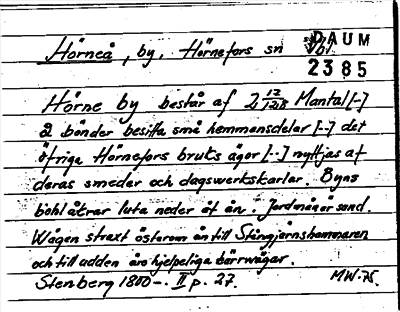 Hörneå, by, Hörnefors sn Vbl.
DAUM
2385
Hörne by består af 2 12/128 Mantal [-]
2 bönder besitta små hemmansdelar [-] det
öfriga Hörnefors bruks ägor [-] nyttjas af
deras smeder och dagswerkskarlar. Byns
bohlåkrar luta neder åt ån. Jordmån är sand.
Wägen straxt österom ån till Stångjernshammaren
och till adden äro hjelpeliga kärrwägar.
Stenberg 1800-. II p. 27. MW-75.